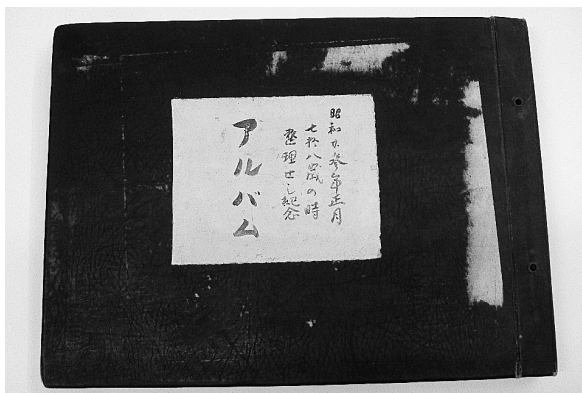 昭和廿参年正月
七拾八歳の時
整理せし紀念
アルバム